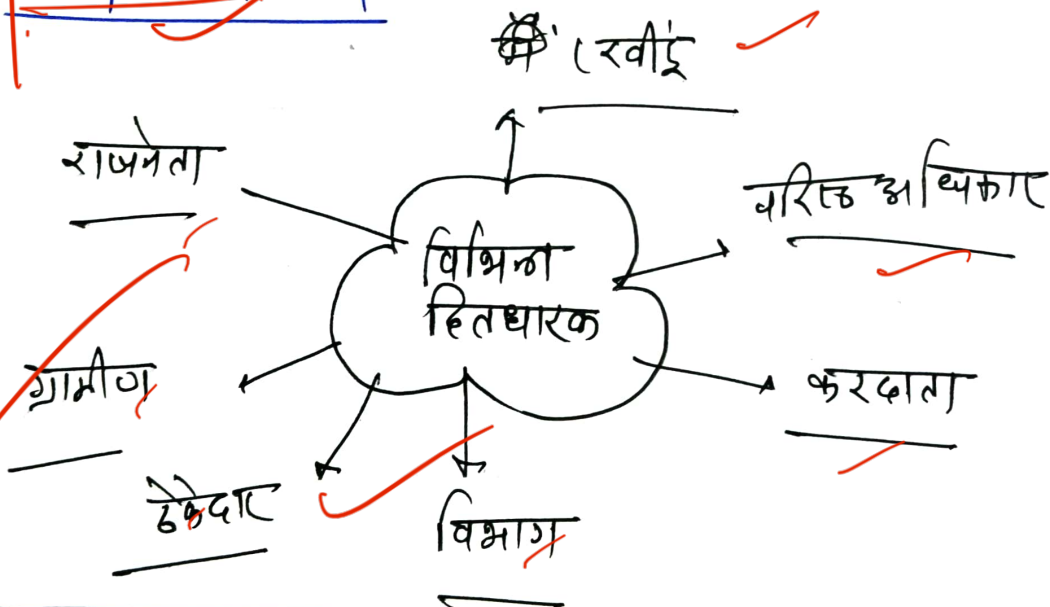 (रवीई
राजनेता
वरिष्ठ अधिकारी
विभिन्न
हितधारक
ग्रामीण
करदाता
ठेकेदार
विभाग